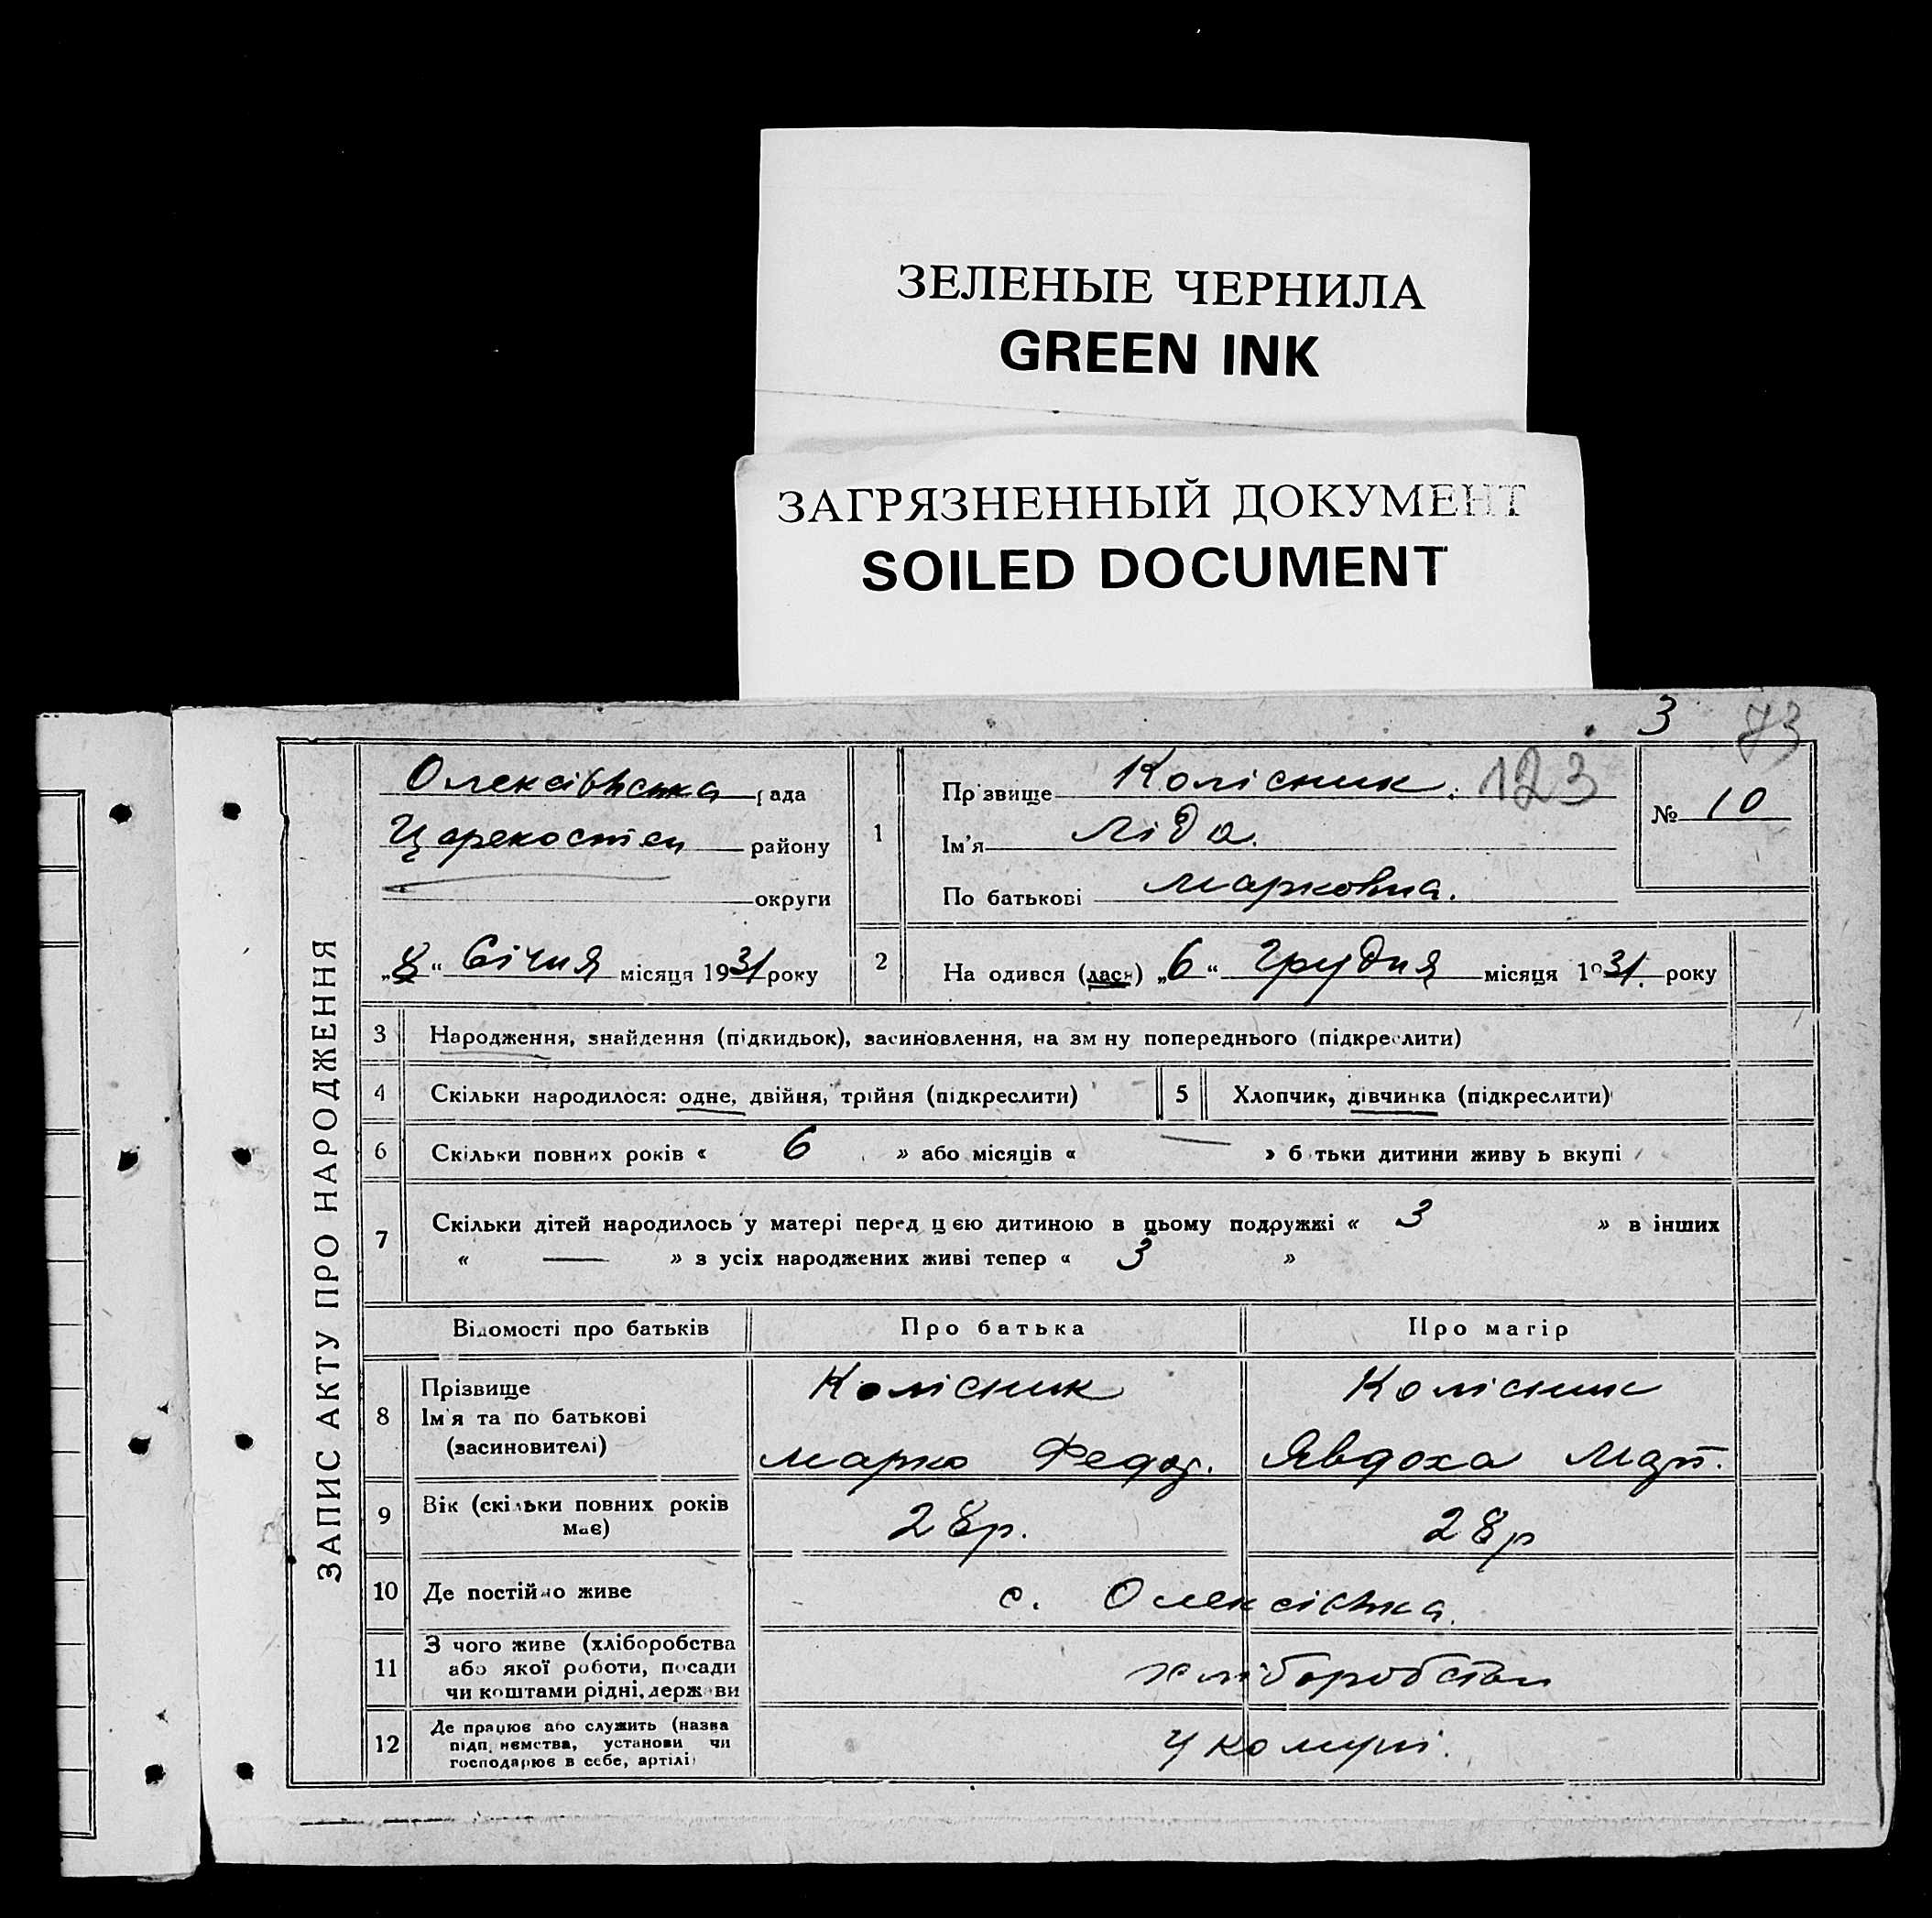 ЗЕЛЕНЫЕ ЧЕРНИЛА
GREEN INK
ЗАГРЯЗНЕННЫЙ ДОКУМЕНТ
SOILED DOCUMENT
3 73
ЗАПИС АКТУ ПРО НАРОДЖЕННЯ
Олексівська рада
Царекостян району
округи
„8“ Січня місяця 1931 року
1
Прізвище Колісник. 123
Ім'я Ліда.
По батькові Марковна.
№ 10
2 На одився (лася) „6“ Грудня місяця 1931. року
3 Народження, знайдення (підкидьок), засиновлення, на зм ну попереднього (підкреслити)
4 Скільки народилося: одне, двійня, трійня (підкреслити) 5 Хлопчик, дівчинка (підкреслити)
6 Скільки повних років « 6 » або місяців « — » б тьки дитини живу ь вкупі
7 Скільки дітей народилось у матері перед цією дитиною в цьому подружжі « 3 » в інших
« — » з усіх народжених живі тепер « 3 »
Відомості про батьків Про батька Про матір
8 Прізвище Колісник Колісник
Ім'я та по батькові
(засиновителі) Марко Федор. Явдоха
9 Вік (скільки повних років має) 28р. 28р
10 Де постійно живе с. Олексієвка.
11 З чого живе (хліборобства
або якої роботи, посади
чи коштами рідні, держави хліборобства
12 Де працює або служить (назва
підп. иємства, установи чи
господарює в себе, артілі) У комуні.